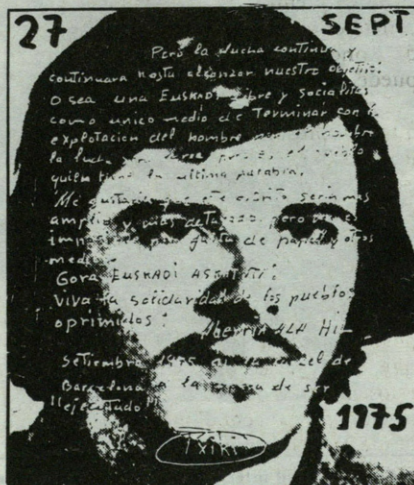 27 SEPT
Pero la lucha continua y
continuara hasta alcanzar nuestro objetivo:
O sea una EUSKADI libre y socialista
como unico medio de Terminar con la
explotacion del hombre por el hombre
la lucha es el pueblo
quien tiene la ultima palabra.
Me gustaria que este escrito seria mas
amplio y mas detallado, pero no es
por falta de papel y otros
medios.
Gora EUSKADI ASKATUTA!
Viva la solidaridad de los pueblos
oprimidos! Aberria ALA HIL
Setiembre 1975 en la carcel de
Barcelona a la espera de ser
"ejecutado"
1975
Txiki